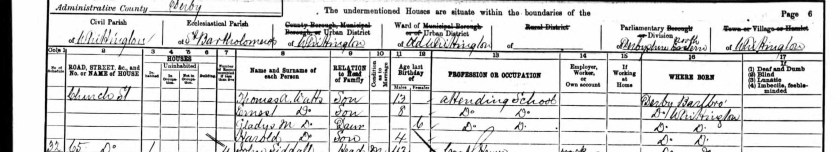 Administrative County Derby
The undermentioned Houses are situate within the boundaries of the
Page 6
Civil Parish
of Whittington
Ecclesiastical Parish
of St Bartholomew
County Borough, Municipal Borough, or Urban District
of Whittington
Ward of Municipal Borough or Urban District
of Old Whittington
Rural District
Parliamentary Borough or Division
of Derbyshire North Eastern
Town or Village or Hamlet
of Whittington
Cols. 1 2 3 4 5 6 7 8 9 10 11 12 13 14 15 16 17
No. of Schedule
ROAD, STREET, &c., and No. or NAME of HOUSE
HOUSES
Inhabited
Uninhabited
In Occupation
Not in Occupation
Building
Name and Surname of each Person
RELATION to Head of Family
Condition as to Marriage
Age last Birthday of
Males Females
PROFESSION OR OCCUPATION
Employer, Worker, or Own account
If Working at Home
WHERE BORN
(1) Deaf and Dumb
(2) Blind
(3) Lunatic
(4) Imbecile, feeble-minded
Church St Thomas A. Watts Son 13 Attending School Derby Barlbro'
Ernest Do Son 8 Do Do Do Whittington
Gladys M Do Daur 6 Do Do Do Do
Harold Do Son 4 Do Do
32 65 Do 1 Siddall Head M